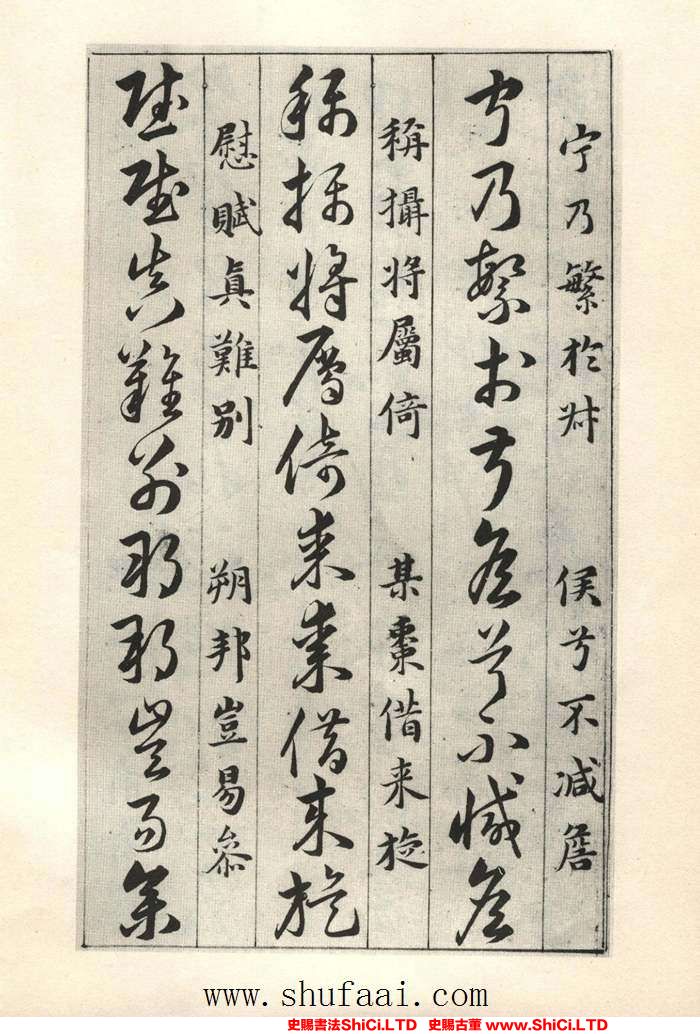 宁乃繁於叔 侯兮不减詹
宁乃繁於叔侯兮不减詹
稱攝将屬倚 某棗借来旋
稱攝将屬倚某棗借来旋
慰賦真難别 朔邦豈易叅
慰賦真難别朔邦豈易叅
www.shufaai.com
史賜書法ShiCi.LTD 史賜古董 www.ShiCi.LTD